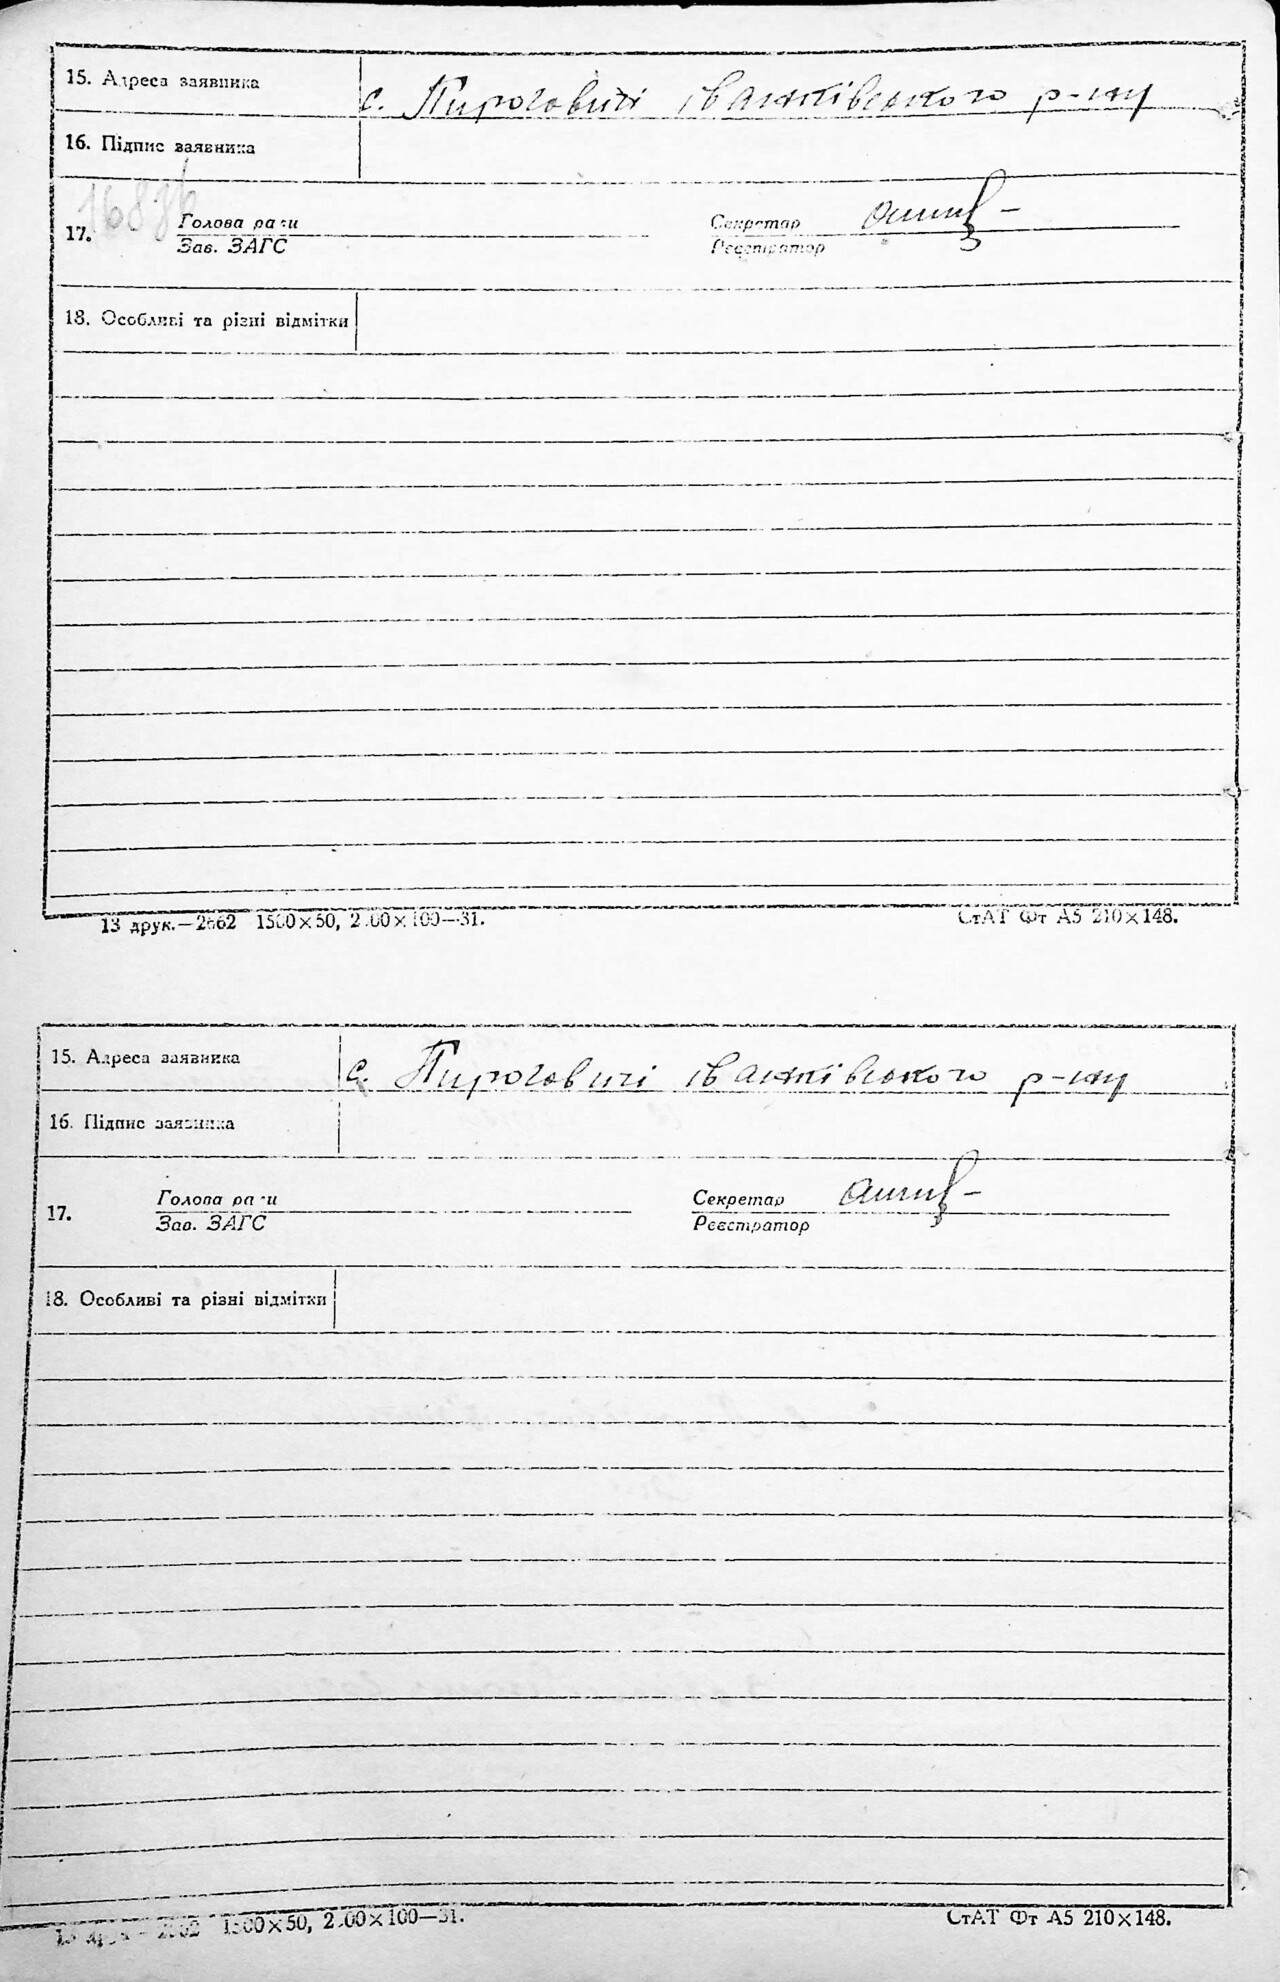 15. Адреса заявника
с. Пироговичі іванківського р-ну
16. Підпис заявника
17.
Голова ради
Зав. ЗАГС
Секретар
Реєстратор
18. Особливі та різні відмітки
13 друк.—2662 1500×50, 2.00×100—31.
СтАТ Фт А5 210×148.
15. Адреса заявника
с. Пироговичі іванківського р-ну
16. Підпис заявника
17.
Голова ради
Зав. ЗАГС
Секретар
Реєстратор
18. Особливі та різні відмітки
1500×50, 2.00×100—31.
СтАТ Фт А5 210×148.